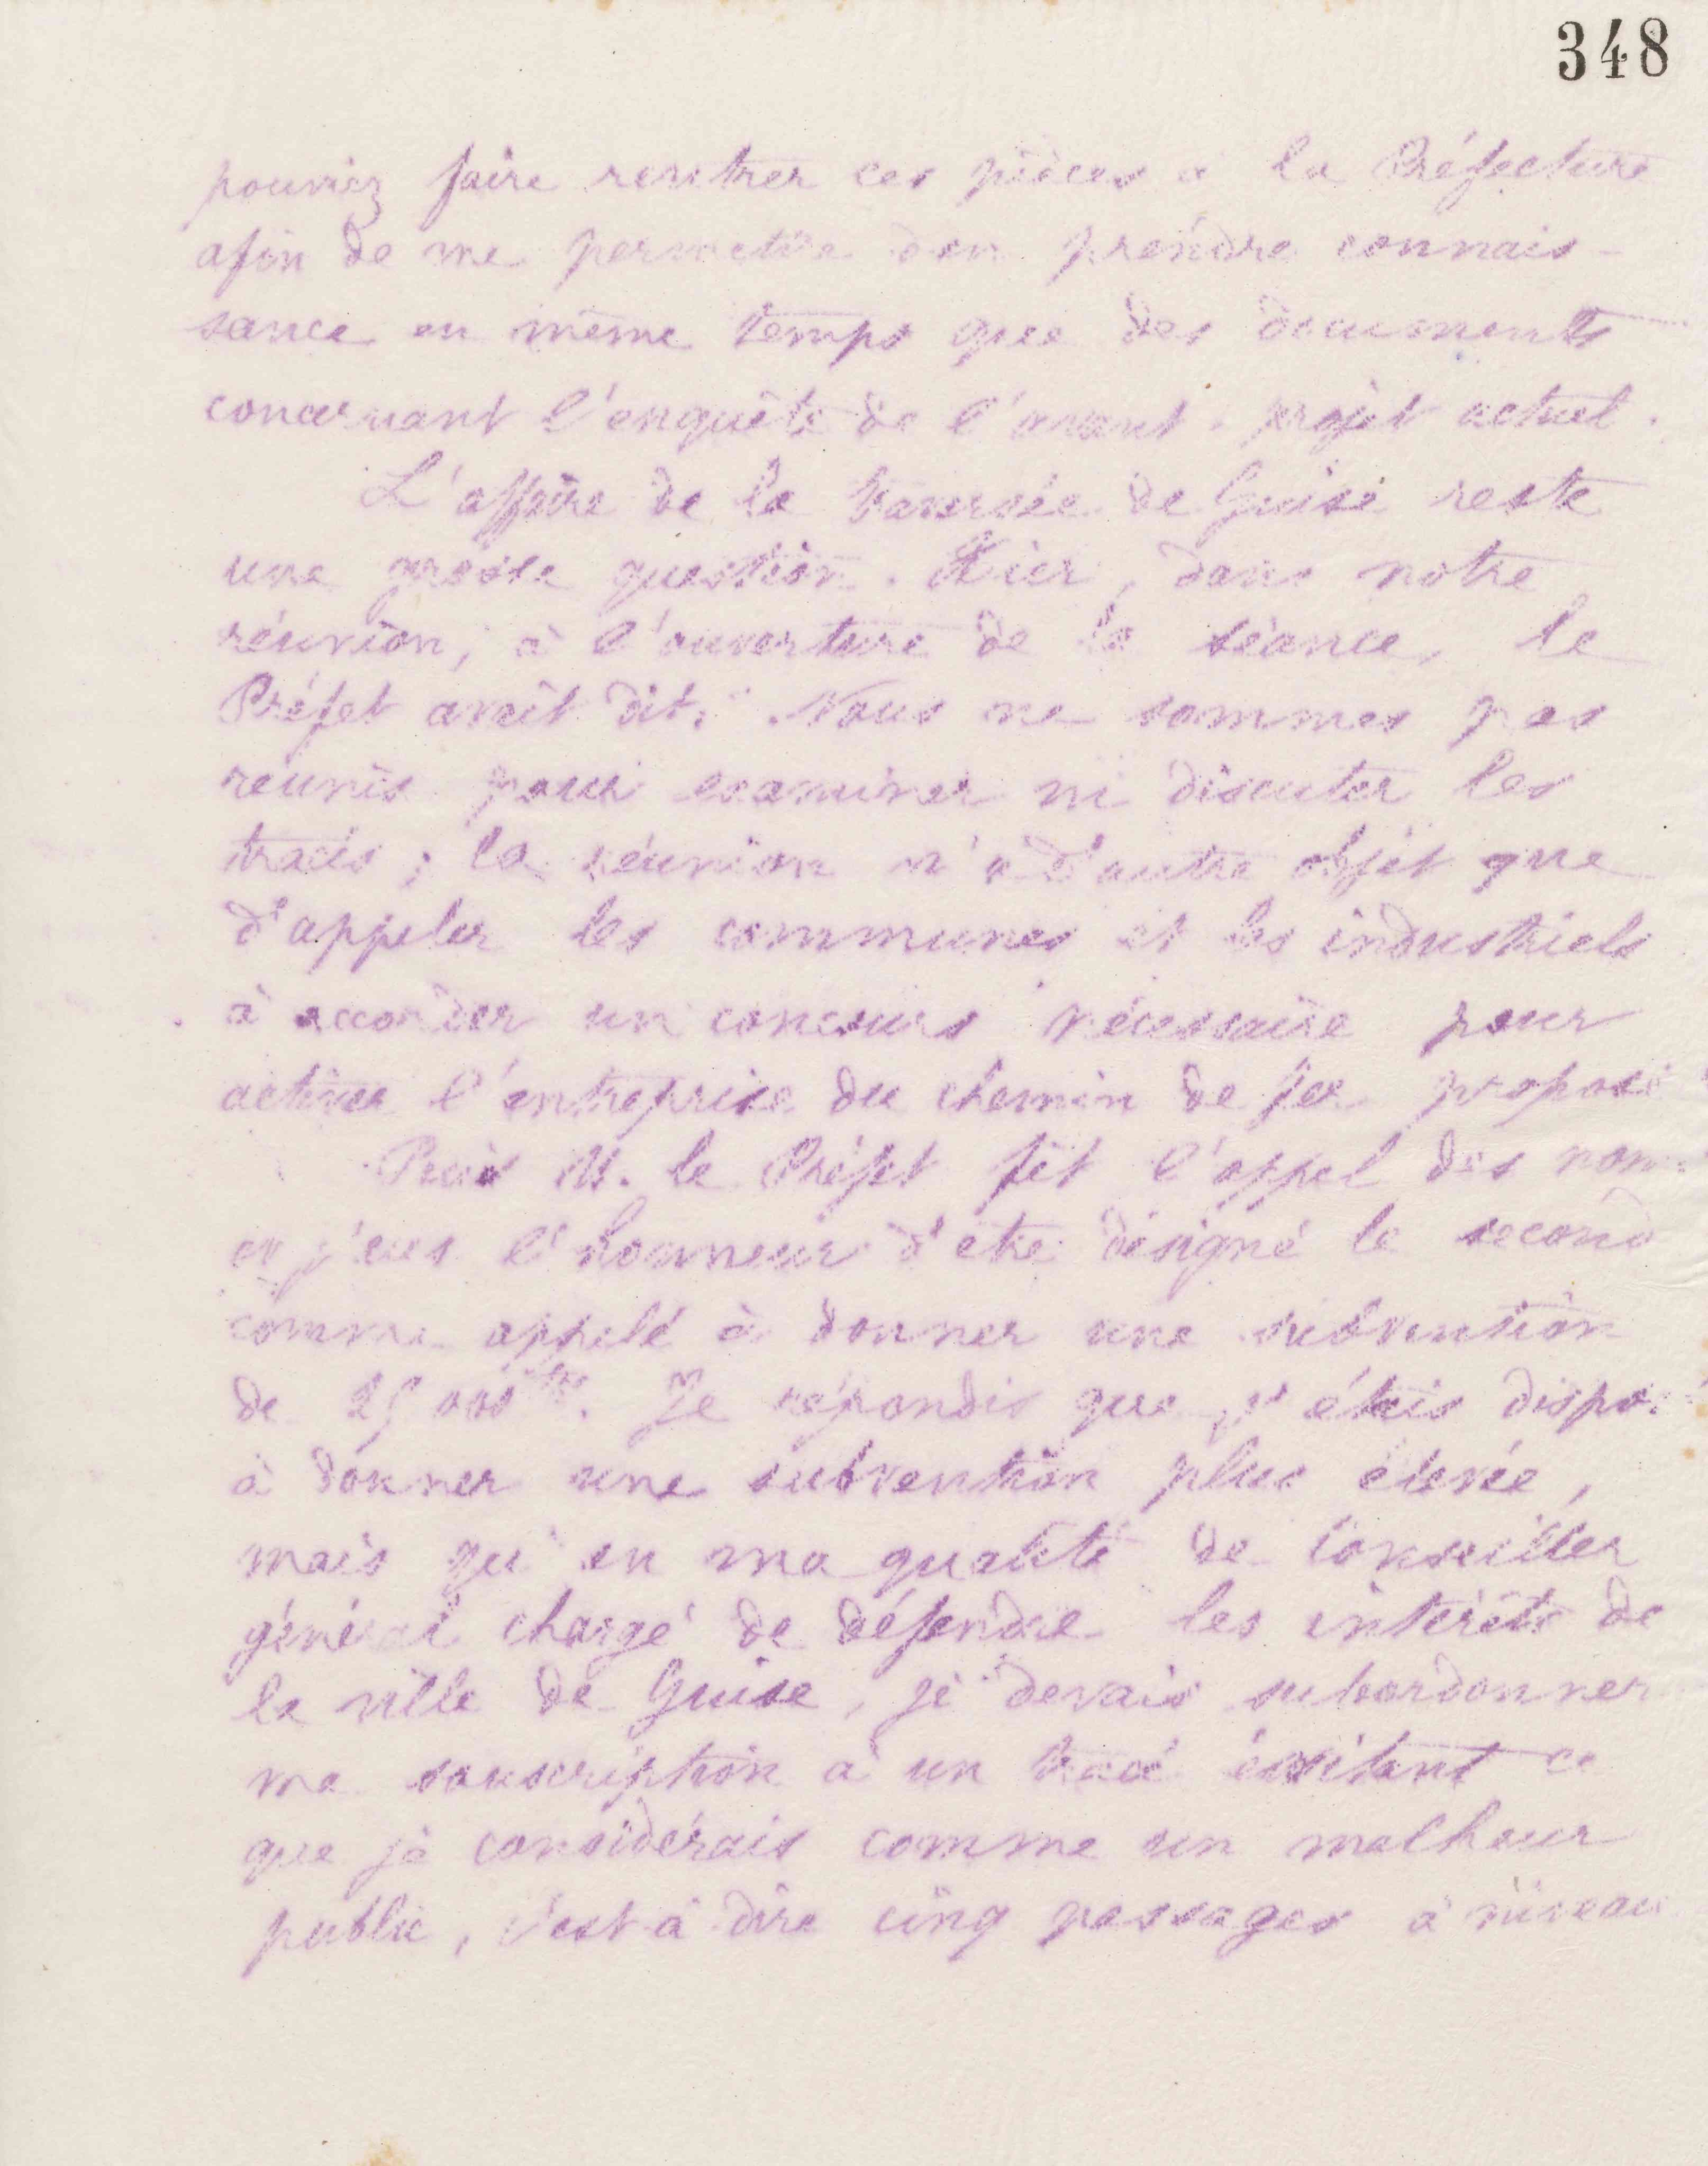 348
pouviez faire rentrer ces pièces à la Préfecture
afin de me permettre d'en prendre connais-
sance en même temps que des documents
concernant l'enquête de l'avant-projet actuel.
L'affaire de la traversée de Guise reste
une grosse question. Hier, dans notre
réunion, à l'ouverture de la séance, le
Préfet avait dit: "Nous ne sommes pas
réunis pour examiner ni discuter les
tracés; la réunion n'a d'autre objet que
d'appeler les communes et les industriels
à accorder un concours nécessaire pour
activer l'entreprise du chemin de fer proposé
Puis M. le Préfet fit l'appel des noms
et j'eus l'honneur d'être désigné le second
comme appelé à donner une subvention
de 25 000 frs. Je répondis que j'étais dispo-
à donner une subvention plus élevée,
mais qu'en ma qualité de Conseiller
général chargé de défendre les intérêts de
la ville de Guise, je devais subordonner
ma souscription à un tracé évitant ce
que je considérais comme un malheur
public, c'est-à-dire cinq passages à niveau